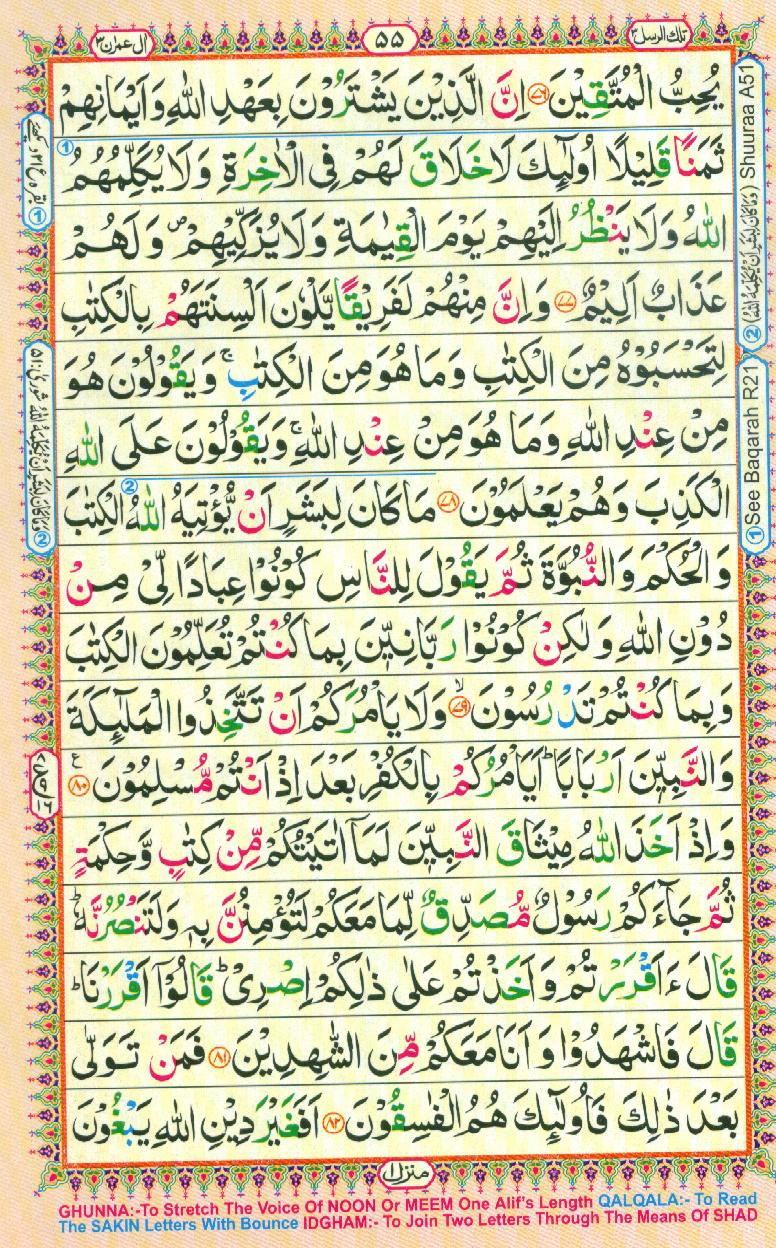 تلك الرسل ٣
٥٥
ال عمرٰن ٣
يُحِبُّ الْمُتَّقِيْنَ ﴿٧٦﴾ اِنَّ الَّذِيْنَ يَشْتَرُوْنَ بِعَهْدِ اللّٰهِ وَاَيْمَانِهِمْ
ثَمَنًا قَلِيْلًا اُولٰٓئِكَ لَا خَلَاقَ لَهُمْ فِى الْاٰخِرَةِ وَلَا يُكَلِّمُهُمُ ①
اللّٰهُ وَلَا يَنْظُرُ اِلَيْهِمْ يَوْمَ الْقِيٰمَةِ وَلَا يُزَكِّيْهِمْ ۖ وَلَهُمْ
عَذَابٌ اَلِيْمٌ ﴿٧٧﴾ وَاِنَّ مِنْهُمْ لَفَرِيْقًا يَّلْوٗنَ اَلْسِنَتَهُمْ بِالْكِتٰبِ
لِتَحْسَبُوْهُ مِنَ الْكِتٰبِ وَمَا هُوَ مِنَ الْكِتٰبِ ۚ وَيَقُوْلُوْنَ هُوَ
مِنْ عِنْدِ اللّٰهِ وَمَا هُوَ مِنْ عِنْدِ اللّٰهِ ۚ وَيَقُوْلُوْنَ عَلَى اللّٰهِ
الْكَذِبَ وَهُمْ يَعْلَمُوْنَ ﴿٧٨﴾ مَا كَانَ لِبَشَرٍ اَنْ يُّؤْتِيَهُ ② اللّٰهُ الْكِتٰبَ
وَالْحُكْمَ وَالنُّبُوَّةَ ثُمَّ يَقُوْلَ لِلنَّاسِ كُوْنُوْا عِبَادًا لِّىْ مِنْ
دُوْنِ اللّٰهِ وَلٰكِنْ كُوْنُوْا رَبَّانِيّٖنَ بِمَا كُنْتُمْ تُعَلِّمُوْنَ الْكِتٰبَ
وَبِمَا كُنْتُمْ تَدْرُسُوْنَ ۙ﴿٧٩﴾ وَلَا يَاْمُرَكُمْ اَنْ تَتَّخِذُوا الْمَلٰٓئِكَةَ
وَالنَّبِيّٖنَ اَرْبَابًا ؕ اَيَاْمُرُكُمْ بِالْكُفْرِ بَعْدَ اِذْ اَنْتُمْ مُّسْلِمُوْنَ ﴿٨٠﴾ ع
وَاِذْ اَخَذَ اللّٰهُ مِيْثَاقَ النَّبِيّٖنَ لَمَاۤ اٰتَيْتُكُمْ مِّنْ كِتٰبٍ وَّحِكْمَةٍ
ثُمَّ جَآءَكُمْ رَسُوْلٌ مُّصَدِّقٌ لِّمَا مَعَكُمْ لَتُؤْمِنُنَّ بِهٖ وَلَتَنْصُرُنَّهٗ ؕ
قَالَ ءَاَقْرَرْتُمْ وَاَخَذْتُمْ عَلٰى ذٰلِكُمْ اِصْرِىْ ؕ قَالُوْٓا اَقْرَرْنَا ؕ
قَالَ فَاشْهَدُوْا وَاَنَا مَعَكُمْ مِّنَ الشّٰهِدِيْنَ ﴿٨١﴾ فَمَنْ تَوَلّٰى
بَعْدَ ذٰلِكَ فَاُولٰٓئِكَ هُمُ الْفٰسِقُوْنَ ﴿٨٢﴾ اَفَغَيْرَ دِيْنِ اللّٰهِ يَبْغُوْنَ
منزل ١
① See Baqarah R21
② (وَمَا كَانَ لِبَشَرٍ اَنْ يُّكَلِّمَهُ اللّٰهُ) Shuuraa A51
② وَمَا كَانَ لِبَشَرٍ اَنْ يُّكَلِّمَهُ اللّٰهُ شورىٰ: ٥١
GHUNNA:-To Stretch The Voice Of NOON Or MEEM One Alif's Length QALQALA:- To Read
The SAKIN Letters With Bounce IDGHAM:- To Join Two Letters Through The Means Of SHAD